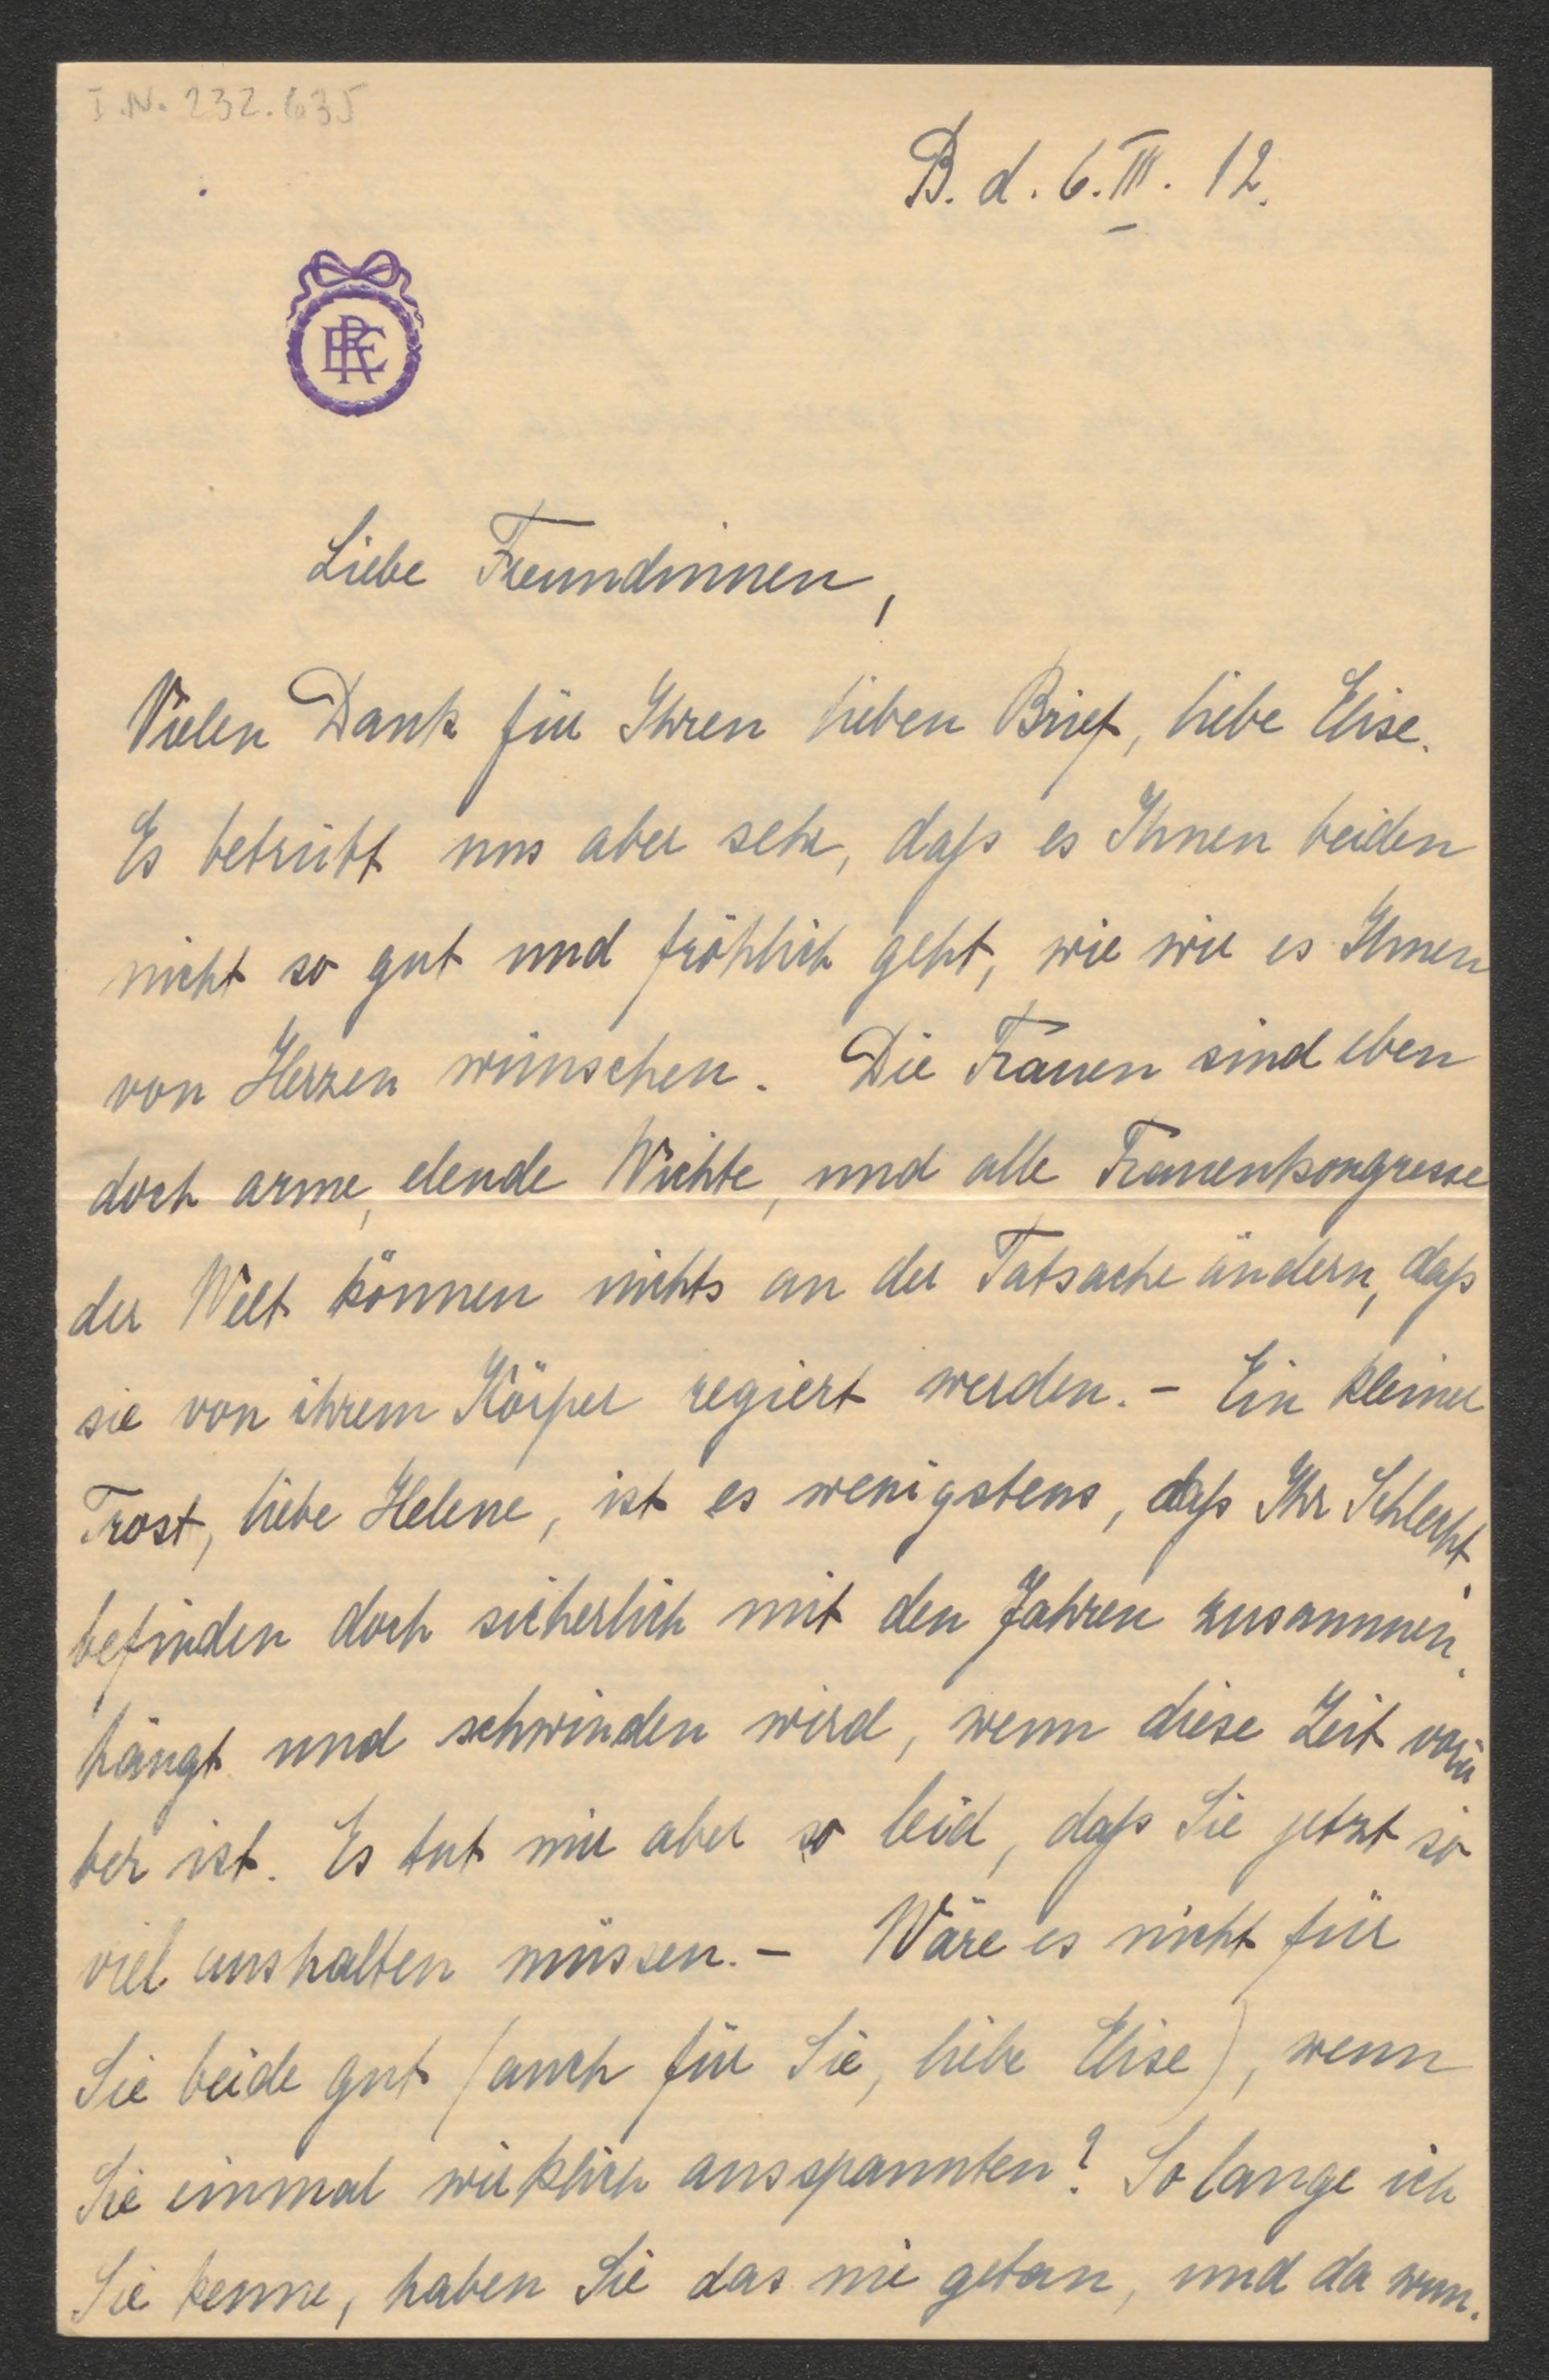 I.N. 232.635
B. d. 6. III. 12.
ERC
Liebe Freundinnen,
Vielen Dank für Ihren lieben Brief, liebe Elise.
Es betrübt uns aber sehr, daß es Ihnen beiden
nicht so gut und fröhlich geht, wie wir es Ihnen
von Herzen wünschen. Die Frauen sind eben
doch arme, elende Wichte, und alle Frauenkongresse
der Welt können nichts an der Tatsache ändern, daß
sie von ihrem Körper regiert werden. – Ein kleiner
Trost, liebe Helene, ist es wenigstens, daß Ihr Schlecht-
befinden doch sicherlich mit den Jahren zusammen-
hängt und schwinden wird, wenn diese Zeit vorü
ber ist. Es tut mir aber so leid, daß Sie jetzt so
viel aushalten müssen. – Wäre es nicht für
Sie beide gut (auch für Sie, liebe Elise), wenn
Sie einmal wirklich ausspannten? So lange ich
Sie kenne, haben Sie das nie getan, und da wun-